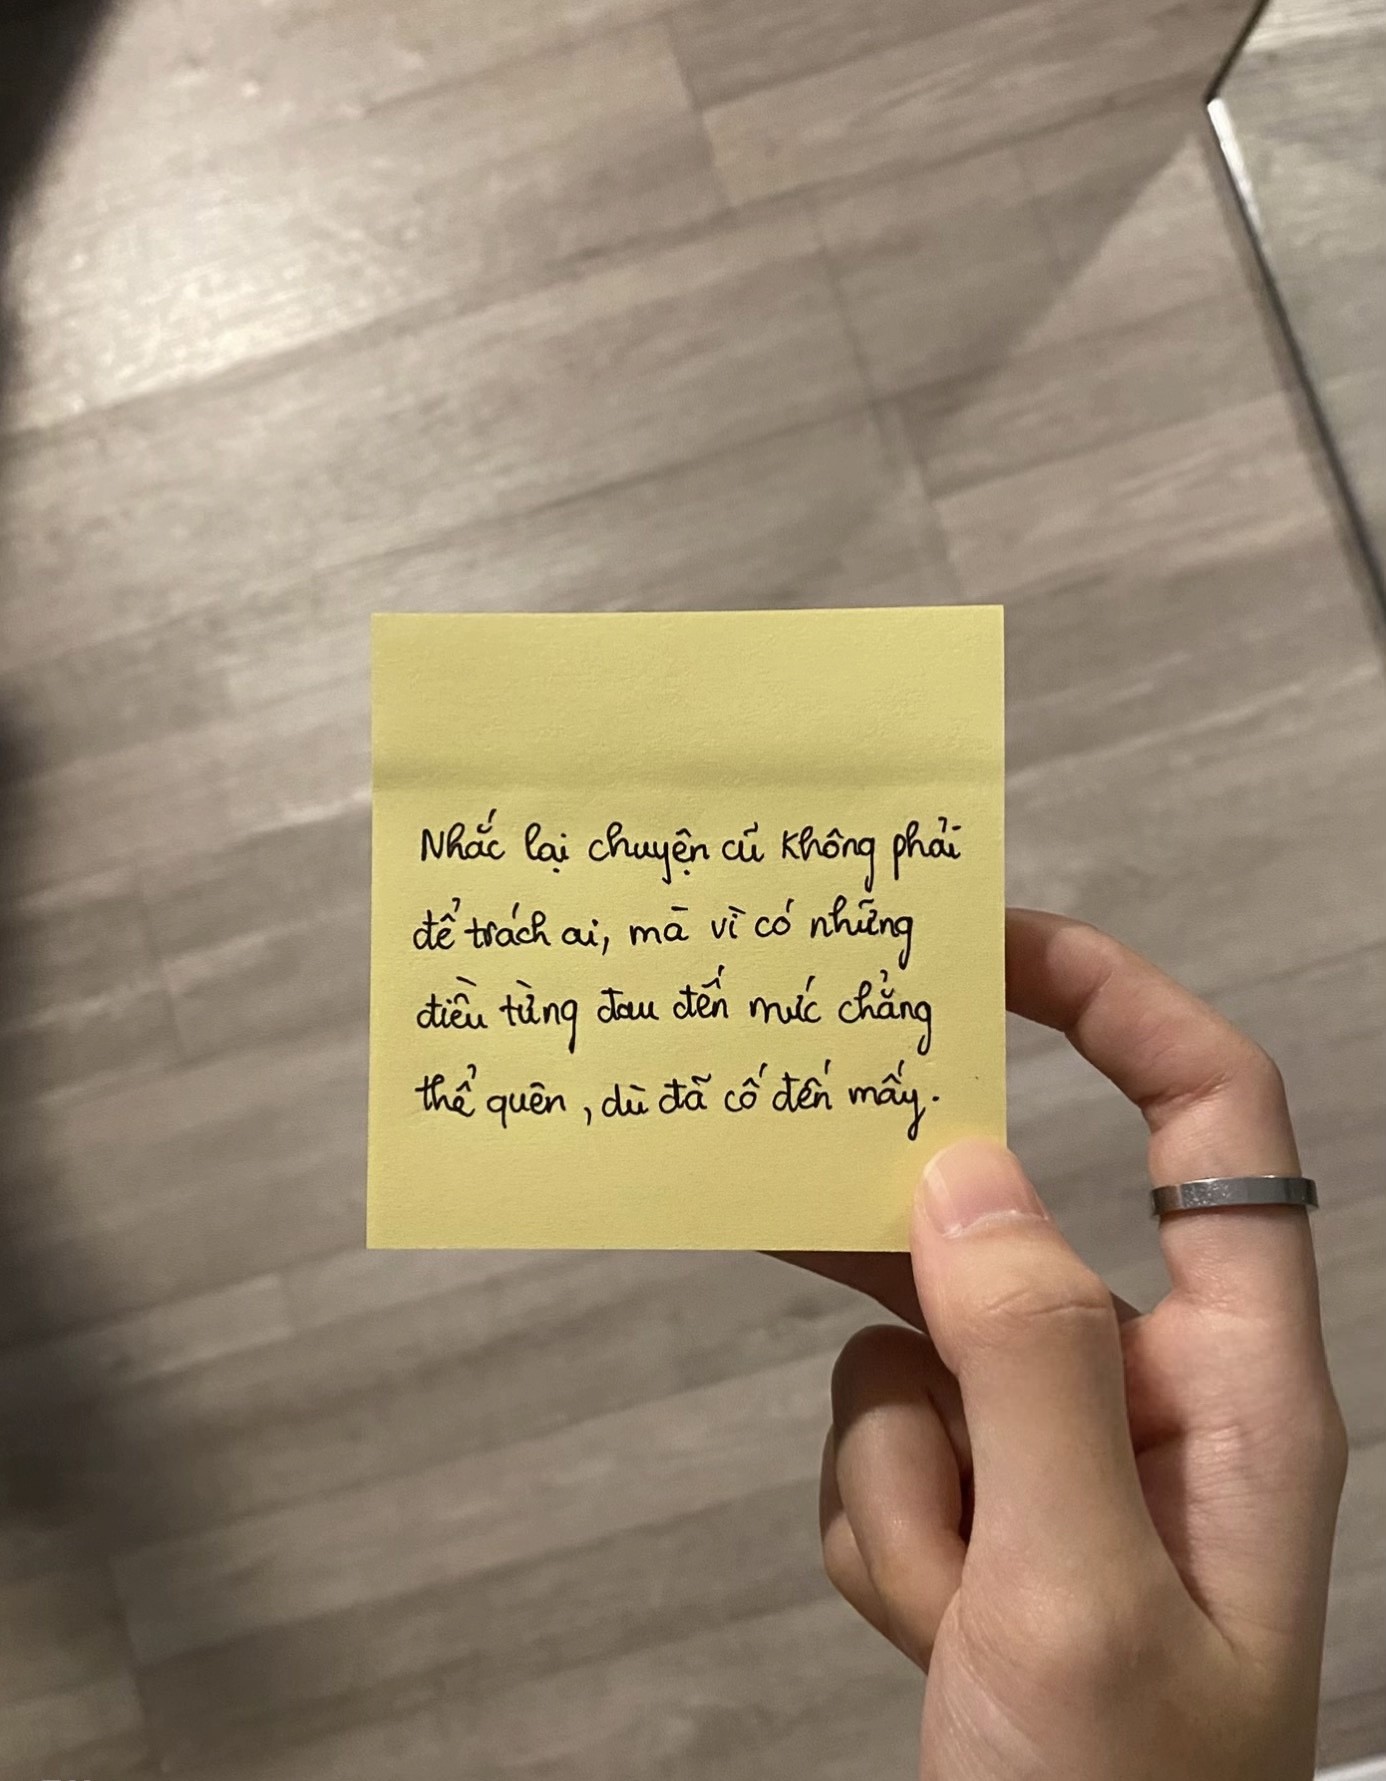 Nhắc lại chuyện cũ không phải
để trách ai, mà vì có những
điều từng đau đến mức chẳng
thể quên, dù đã cố đến mấy.